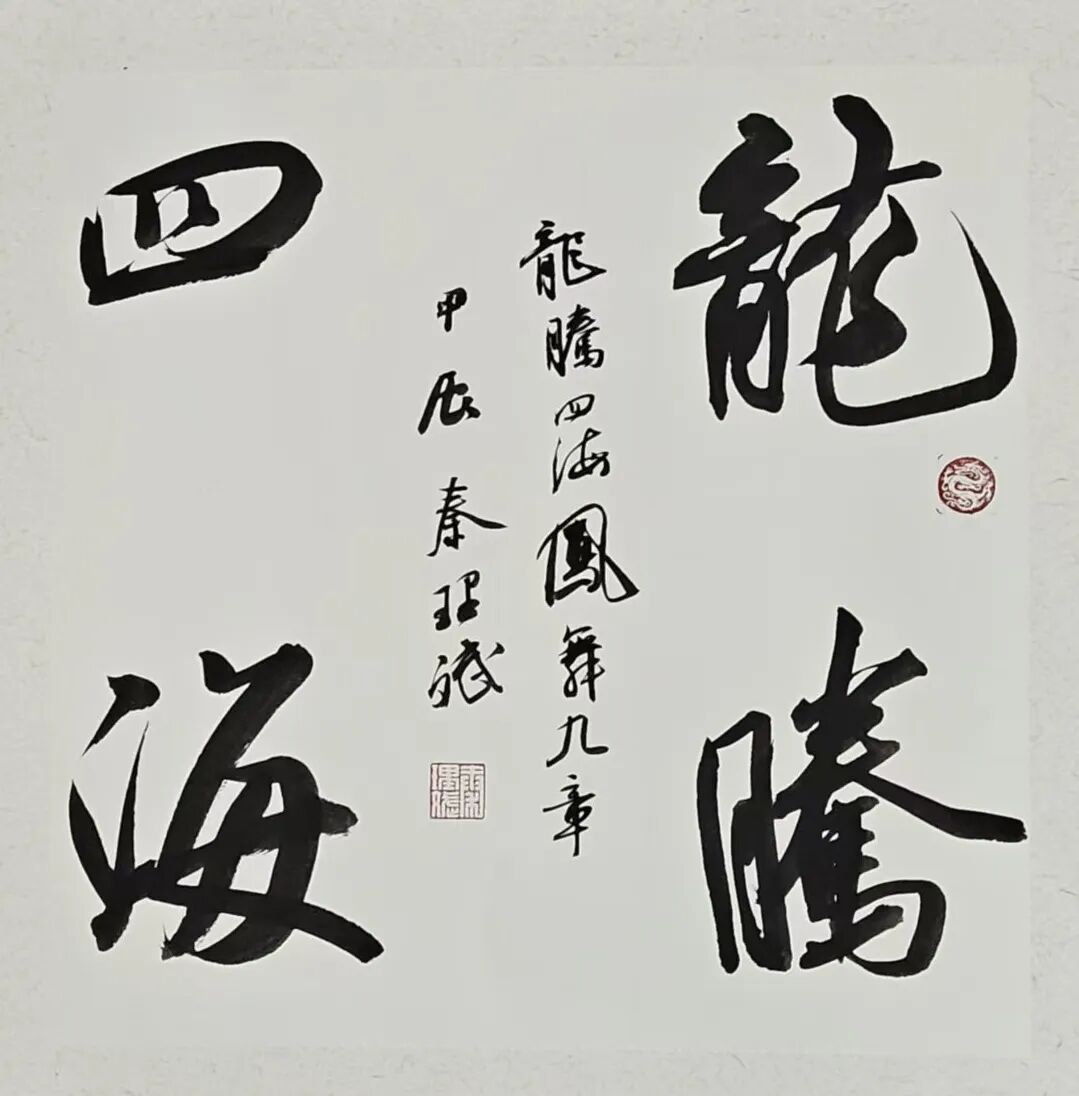 龍騰
龍騰四海鳳舞九章
甲辰秦理斌
四海